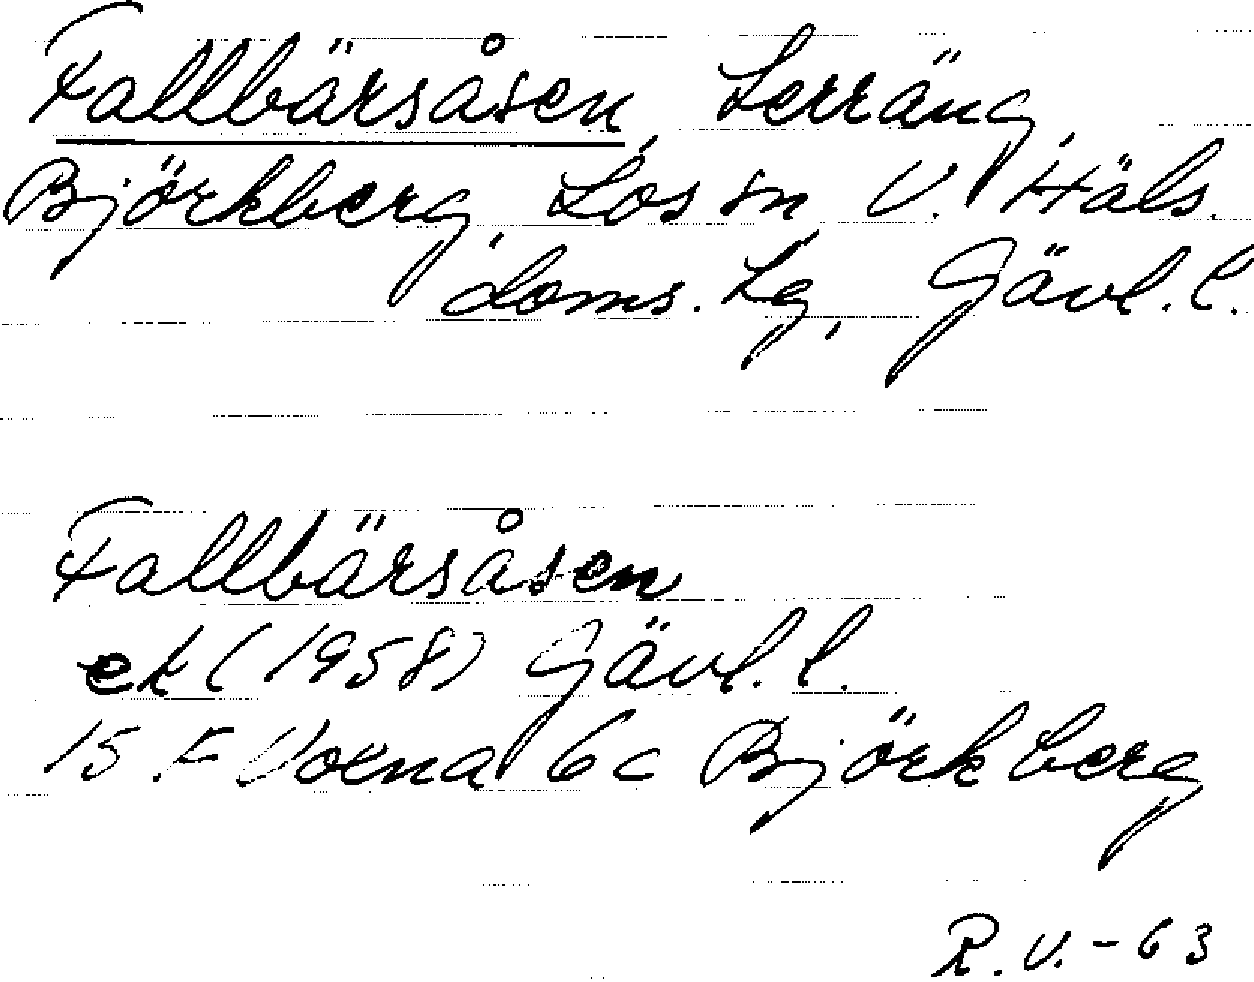 Fallbärsåsen, terräng,
Björkberg, Los sn V. Häls.
doms. lg, Gävl. l.
Fallbärsåsen
ek (1958) Gävl. l.
15 F Voxna 6c Björkberg
R.V.-63